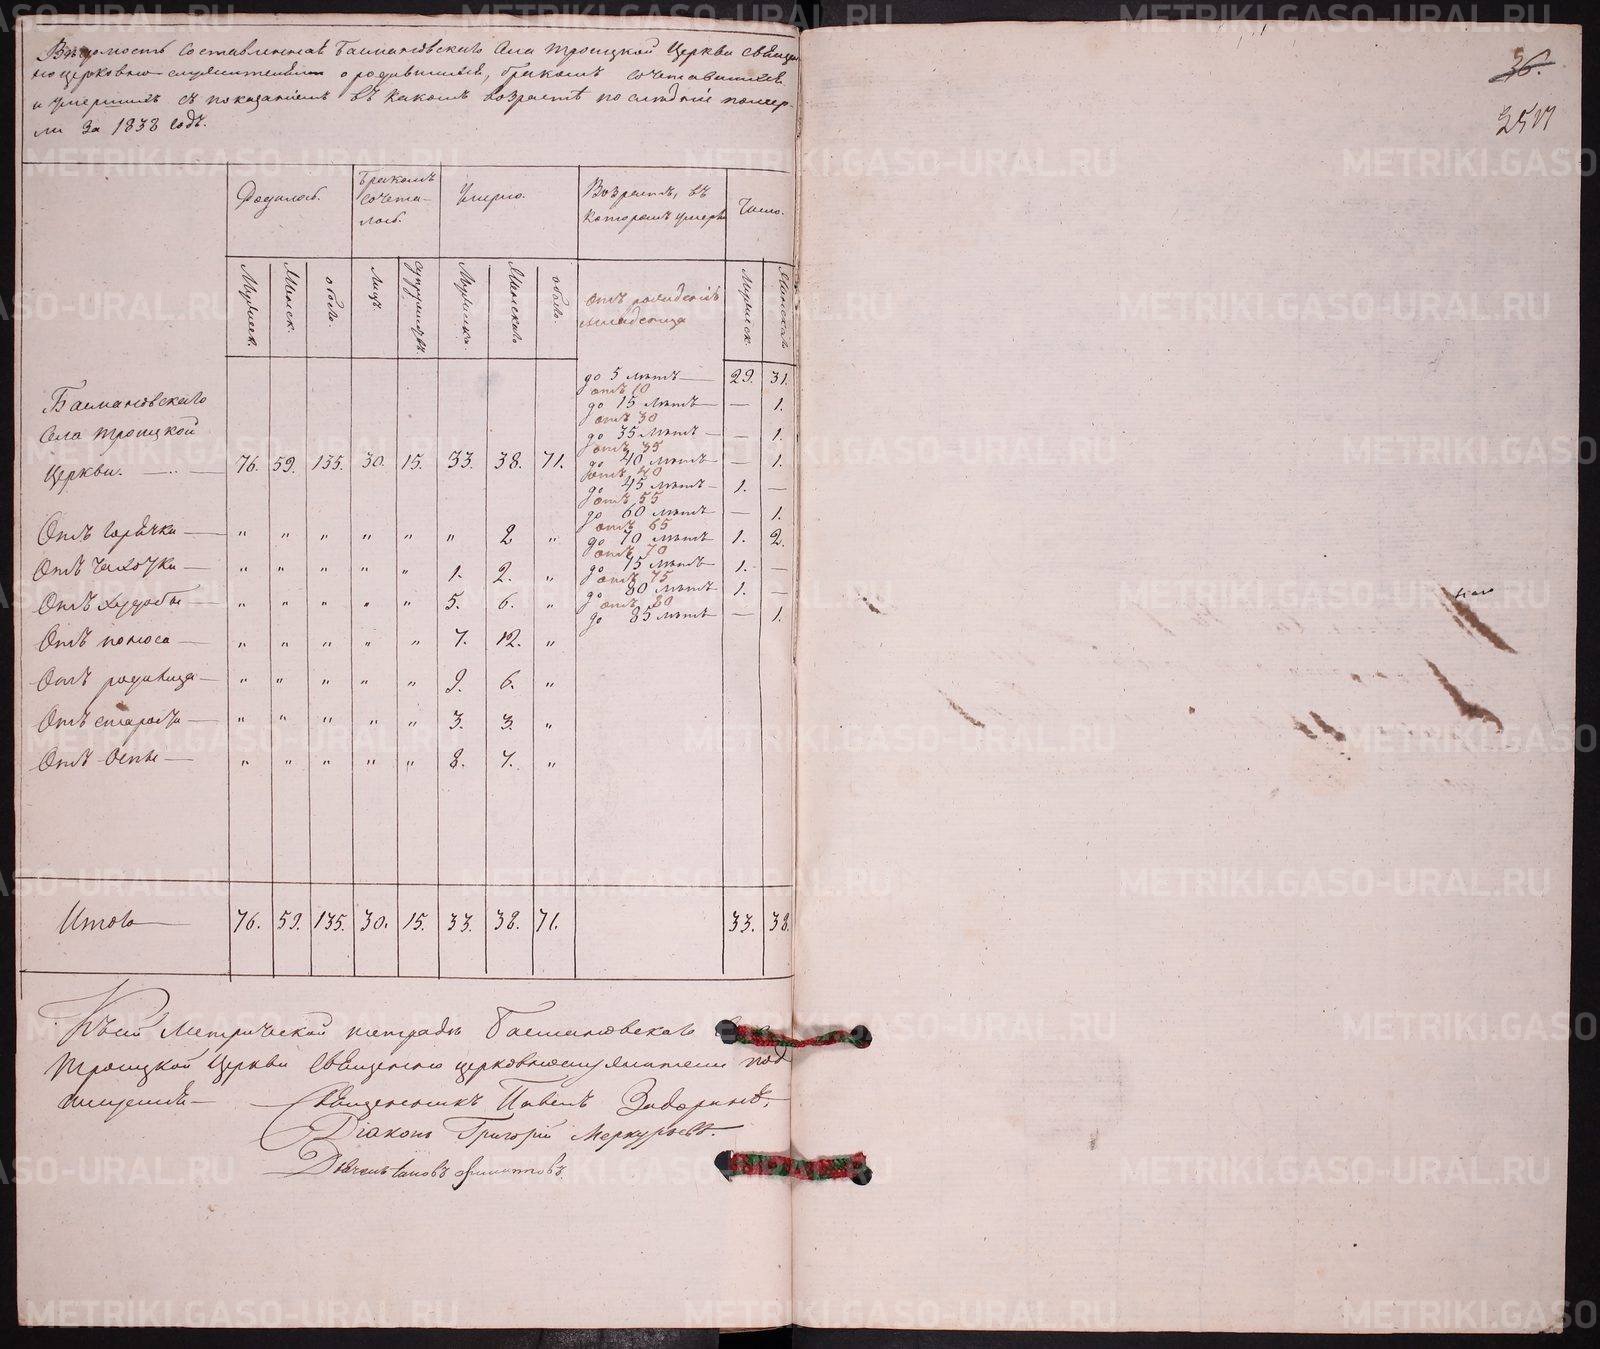 Вѣдомость составленная Басмановскаго Села Троицкой Церкви священ
но церковно служителями о родившихся, бракомъ сочетавшихся
и умершихъ съ показаніемъ въ какомъ возрастѣ последніе помер
ли за 1838 годъ.
Родилось. Бракомъ сочета-лось. Умерло. Возрастъ, въ которомъ умерли Число.
Мужеск. Женск. обоего. лицъ. супружествъ. Мужска. Женскаго обоего. Отъ рожденія младенца Мужеск. Женскаго
до 5 лѣтъ — 29. 31.
отъ 10
до 15 лѣтъ — — 1.
отъ 30
до 35 лѣтъ — — 1.
отъ 35
до 40 лѣтъ — — 1.
отъ 40
до 45 лѣтъ — 1. —
отъ 55
до 60 лѣтъ — — 1.
отъ 65
до 70 лѣтъ — 1. 2.
отъ 70
до 75 лѣтъ — 1. —
отъ 75
до 80 лѣтъ — 1. —
отъ 80
до 85 лѣтъ — — 1.
Басмановскаго
Села Троицкой
Церкви. — 76. 59. 135. 30. 15. 33. 38. 71.
Отъ горячки — " " " " " " 2 "
Отъ чахотки — " " " " " 1. 2. "
Отъ худобы — " " " " " 5. 6. "
Отъ поноса — " " " " " 7. 12. "
Отъ родимца — " " " " " 9. 6. "
Отъ старости — " " " " " 3. 3. "
Отъ оспы — " " " " " 8. 7. "
Итого — 76. 59. 135. 30. 15. 33. 38. 71. 33. 38.
Къ сей Метрической тетради Басмановскаго
Троицкой Церкви Священно церковнослужители под
писуемся — Священникъ Павелъ
Діаконъ Григорій Меркурьевъ.
36.
METRIKI.GASO-URAL.RU